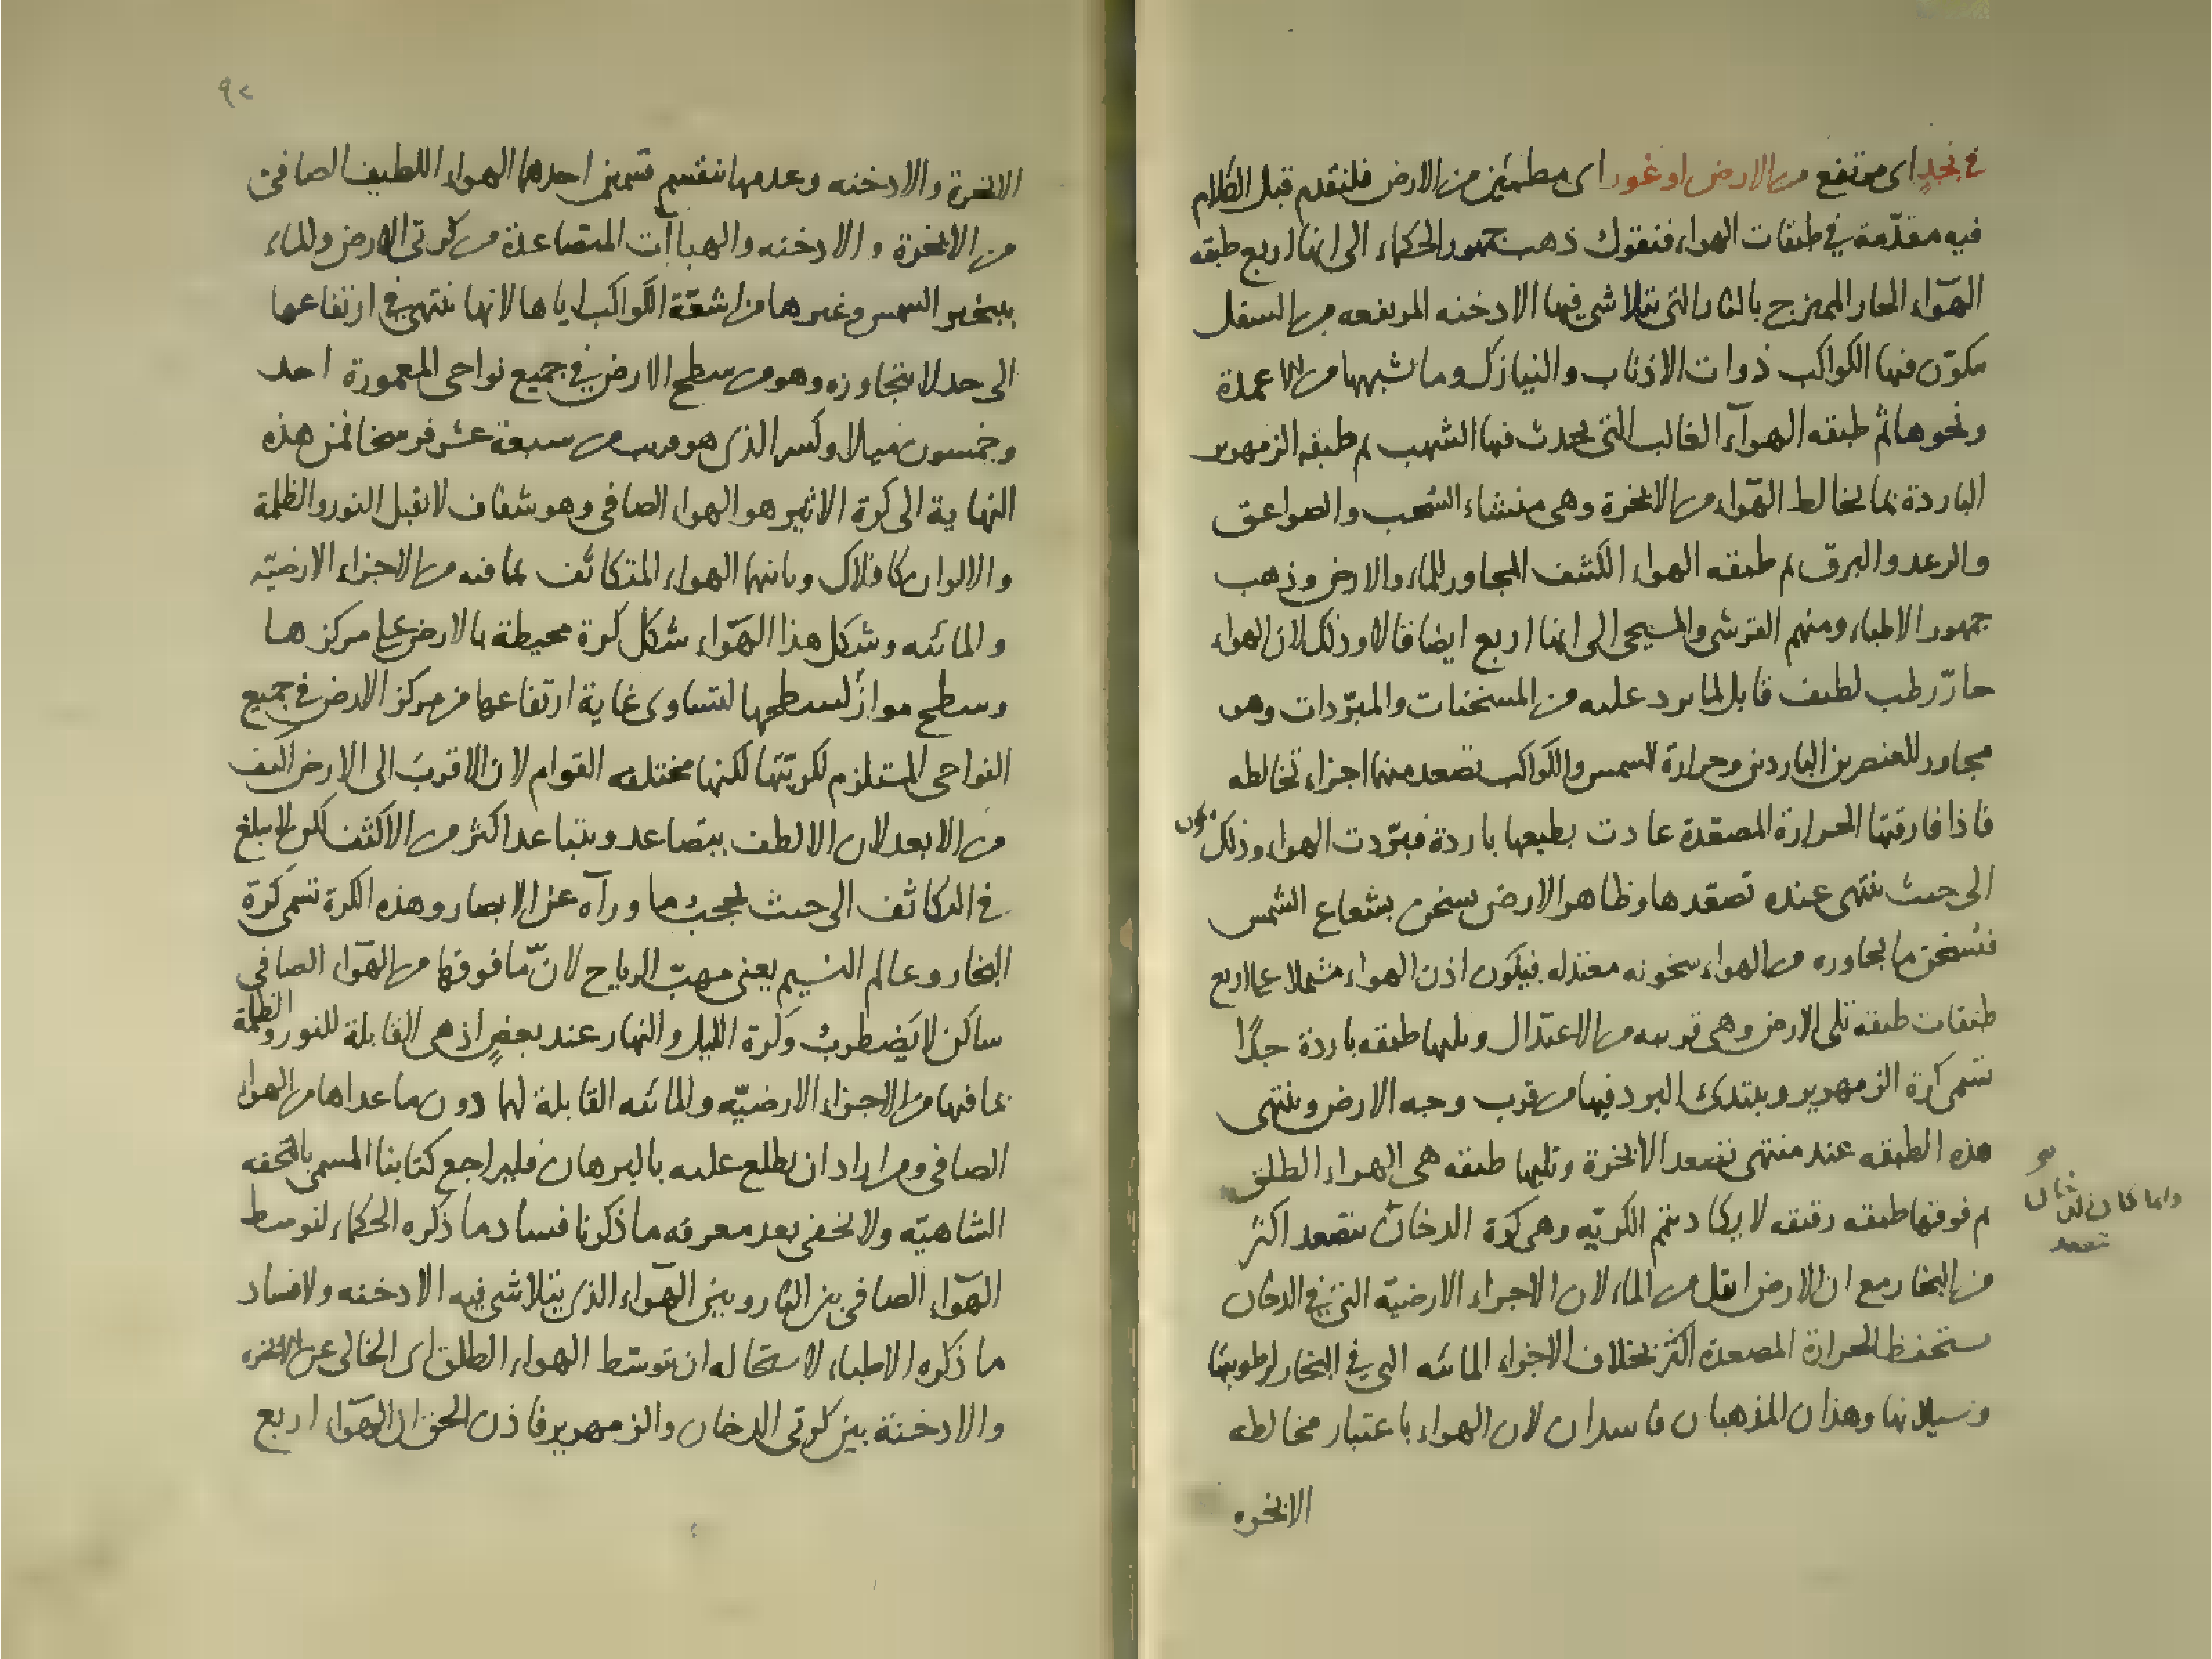 في نجدٍ اى مرتفع من الارض او غور اى مطمئن من الارض فلنقدم قبل الكلام
فيه مقدّمة في طبقات الهواء فنقول ذهب جمهور الحكماء الى انها اربع طبقه
الهوآء الحار الممتزج بالنار التى تتلاشى فيها الادخنه المرتفعه من السفل
يتكوّن فيها الكواكب ذوات الاذناب والنيازك وما يشبهها من الاعمدة
ونحوها ثم طبقه الهوآء الغالب التى يحدث فيها الشهب ثم طبقه الزمهرير
الباردة بما يخالط الهوآء من الابخرة وهى منشاء السّحب والصواعق
والرعد والبرق ثم طبقه الهواء الكثيف المجاور للماء والارض وذهب
جمهور الاطباء ومنهم القرشى والمسيحى الى انها اربع ايضا قالا وذلك لان الهواء
حارّ رطب لطيف قابل لما يرد عليه من المسخنات والمبرّدات وهو
مجاور للعنصرين الباردين وحرارة الشمس والكواكب تصعد منهما اجزاء تخالطه
فاذا فارقتها الحرارة المصعّدة عادت بطبعها باردة فبرّدت الهواء وذلك يكون
الى حيث ينتهى عنده تصعّدها وظاهر الارض يسخن بشعاع الشمس
فتسخن ما يجاوره من الهواء سخونه معتدله فيكون اذن الهواء مشتملا على اربع
طبقات طبقه تلى الارض وهى قريبه من الاعتدال ويليها طبقه باردة جدًا
تسمى كرة الزمهرير ويبتدئ البرد فيها من قرب وجه الارض وينتهى
هذه الطبقه عند منتهى تصعد الابخرة وتليها طبقه هى الهواء الطلق
ثم فوقها طبقه رقيقه لا يكاد يتم الكريّه وهى كرة الدخان يتصعد اكثر
وانما كان الدخان
يتصعد
من البخار مع ان الارض اثقل من الماء لان الاجزاء الارضيّة التى في الدخان
يستحفظ الحرارة المصعدة اكثر بخلاف الاجزاء المائيه التى في البخار لرطوبتها
وسيلانها وهذان المذهبان فاسدان لان الهواء باعتبار مخالطه
الابخره
٩٢
الابخرة والادخنه وعدمها ينقسم قسمين احدهما الهواء اللطيف الصافى
من الابخرة والادخنه والهباآت المتصاعدة من كرتى الارض والماء
بتبخير الشمس وغيرها من اشعّة الكواكب اياها لانها ينتهى في ارتفاعها
الى حد لا يتجاوزه وهو من سطح الارض في جميع نواحى المعمورة احد
وخمسون ميلا وكسر الذى هو قريب من سبعة عشر فرسخا فمن هذه
النهاية الى كرة الاثير هو الهواء الصافى وهو شفاف لا يقبل النور والظلمة
والالوان كافلاك وثانيهما الهواء المتكاثف بما فيه من الاجزاء الارضيّه
والمائيه وشكل هذا الهوآء شكل كرة محيطة بالارض على مركزها
وسطح موازٍ لسطحها لتساوى غاية ارتفاعها من مركز الارض في جميع
النواحى المستلزم لكريّتها لكنها مختلفه القوام لان الاقرب الى الارض اكثف
من الابعد لان الالطف يتصاعد ويتباعد اكثر من الاكثف لكن لا يبلغ
في التكاثف الى حيث يحجب ما ورآه عن الابصار وهذه الكرة تسمى كرة
البخار وعالم النسيم يعنى مهبّ الرياح لانّ ما فوقها من الهوآء الصافى
ساكن لا يَضطرب وكرة الليل والنهار عند بعضٍ اذ هى القابلة للنور والظلمة
بما فيها من الاجزاء الارضيّه والمائيه القابلة لهما دون ما عداها من الهواء
الصافى ومن اراد ان يطلع عليه بالبرهان فليراجع كتابنا المسمى بالتحفه
الشاهيّه ولا يخفى بعد معرفه ما ذكرنا فساد ما ذكره الحكماء لتوسط
الهوآء الصافى بين النار وبين الهوآء الذى يتلاشى فيه الادخنه ولا فساد
ما ذكره الاطباء لاستحاله ان يتوسّط الهواء الطلق اى الخالى عن الابخره
والادخنة بين كرتى الدخان والزمهرير فاذن الحق ان الهوآء اربع